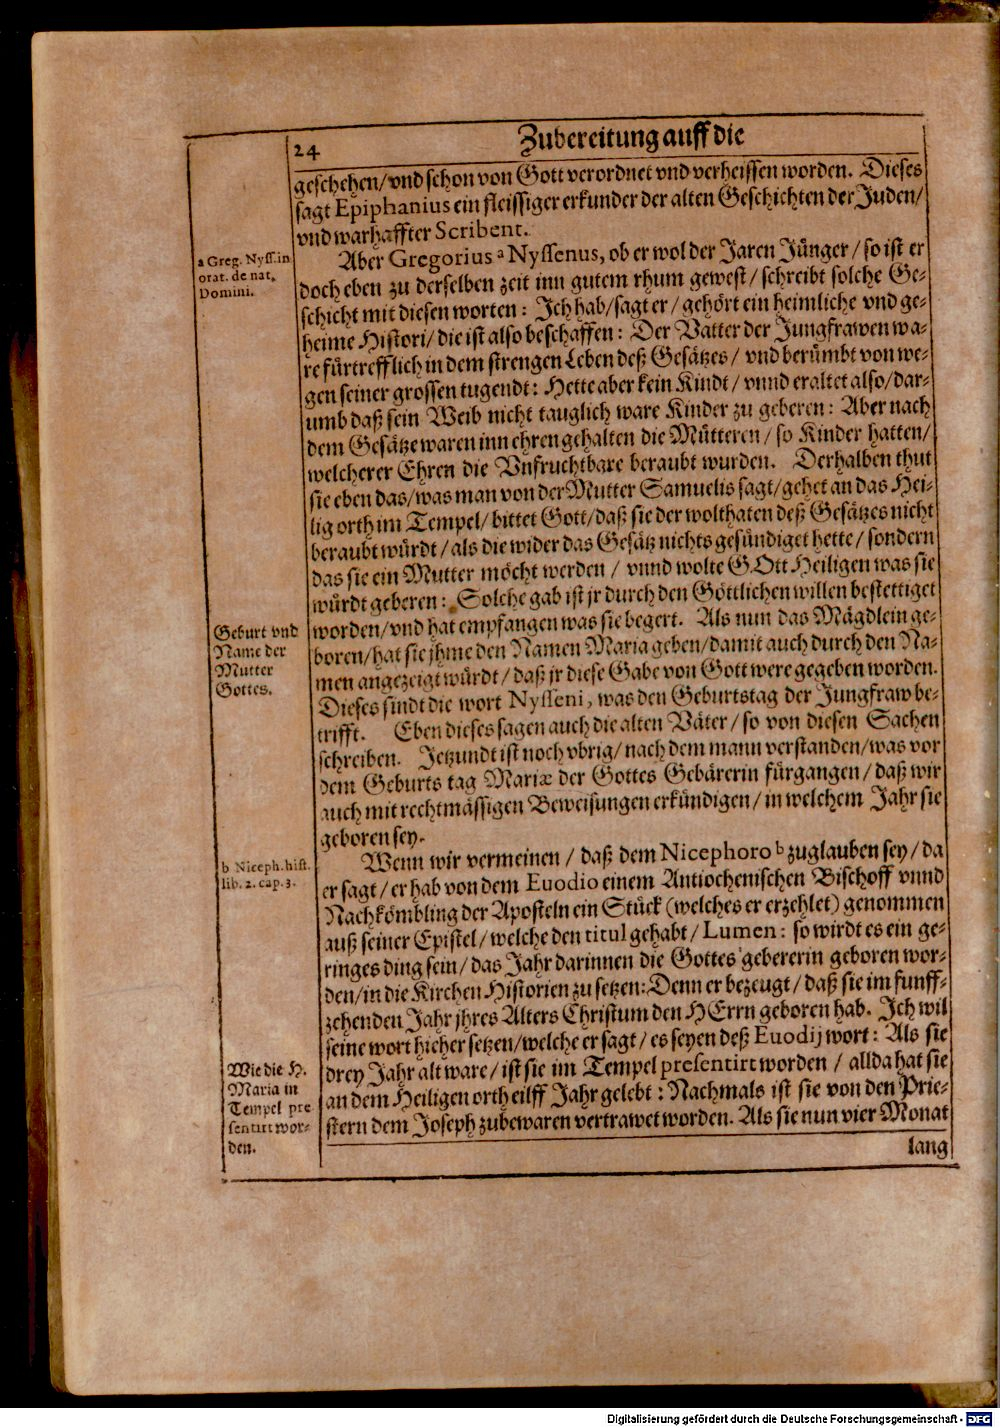 24 Zubereitung auff die
geschehen/vnd schon von Gott verordnet vnd verheissen worden. Dieses
sagt Epiphanius ein fleissiger erkunder der alten Geschichten der Juden/
vnd warhaffter Scribent.
a Greg. Nyss. in
orat. de nat.
Domini.
Aber Gregorius a Nyssenus, ob er wol der Jaren Jünger/so ist er
doch eben zu derselben zeit inn gutem rhum gewest/schreibt solche Ge-
schicht mit diesen worten: Ich hab/sagt er/gehört ein heimliche vnd ge-
heime Histori/die ist also beschaffen: Der Vatter der Jungfrawen wa-
re fürtrefflich in dem strengen Leben deß Gesätzes/vnd berümbt von we-
gen seiner grossen tugendt: Hette aber kein Kindt/vnnd eraltet also/dar-
umb daß sein Weib nicht tauglich ware Kinder zu geberen: Aber nach
dem Gesätze waren inn ehren gehalten die Mütteren/so Kinder hatten/
welcherer Ehren die Vnfruchtbare beraubt wurden. Derhalben thut
sie eben das/was man von der Mutter Samuelis sagt/gehet an das Hei-
lig orth im Tempel/bittet Gott/daß sie der wolthaten deß Gesätzes nicht
beraubt würdt/als die wider das Gesätz nichts gesündiget hette/sondern
das sie ein Mutter möcht werden/vnnd wolte GOtt Heiligen was sie
würdt geberen: Solche gab ist jr durch den Göttlichen willen bestettiget
Geburt vnd
Name der
Mutter
Gottes.
worden/vnd hat empfangen was sie begert. Als nun das Mägdlein ge-
boren/hat sie jhme den Namen Maria geben/damit auch durch den Na-
men angezeigt würdt/daß jr diese Gabe von Gott were gegeben worden.
Dieses sindt die wort Nysseni, was den Geburtstag der Jungfraw be-
trifft. Eben dieses sagen auch die alten Väter/so von diesen Sachen
schreiben. Jetzundt ist noch vbrig/nach dem mann verstanden/was vor
dem Geburts tag Mariæ der Gottes Gebärerin fürgangen/daß wir
auch mit rechtmässigen Beweisungen erkündigen/in welchem Jahr sie
geboren sey.
b Niceph. hist.
lib. 2. cap. 3.
Wenn wir vermeinen/daß dem Nicephoro b zuglauben sey/da
er sagt/er hab von dem Euodio einem Antiochenischen Bischoff vnnd
Nachkömbling der Aposteln ein Stück (welches er erzehlet) genommen
auß seiner Epistel/welche den titul gehabt/Lumen: so wirdt es ein ge-
ringes ding sein/das Jahr darinnen die Gottes gebererin geboren wor-
den/in die Kirchen Historien zu setzen: Denn er bezeugt/daß sie im funff-
zehenden Jahr jhres Alters Christum den HErrn geboren hab. Ich wil
seine wort hieher setzen/welche er sagt/es seyen deß Euodij wort: Als sie
Wie die H.
Maria in
Tempel pre
sentirt wor-
den.
drey Jahr alt ware/ist sie im Tempel presentirt worden/allda hat sie
an dem Heiligen orth eilff Jahr gelebt: Nachmals ist sie von den Prie-
stern dem Joseph zubewaren vertrawet worden. Als sie nun vier Monat
lang
Digitalisierung gefördert durch die Deutsche Forschungsgemeinschaft - DFG